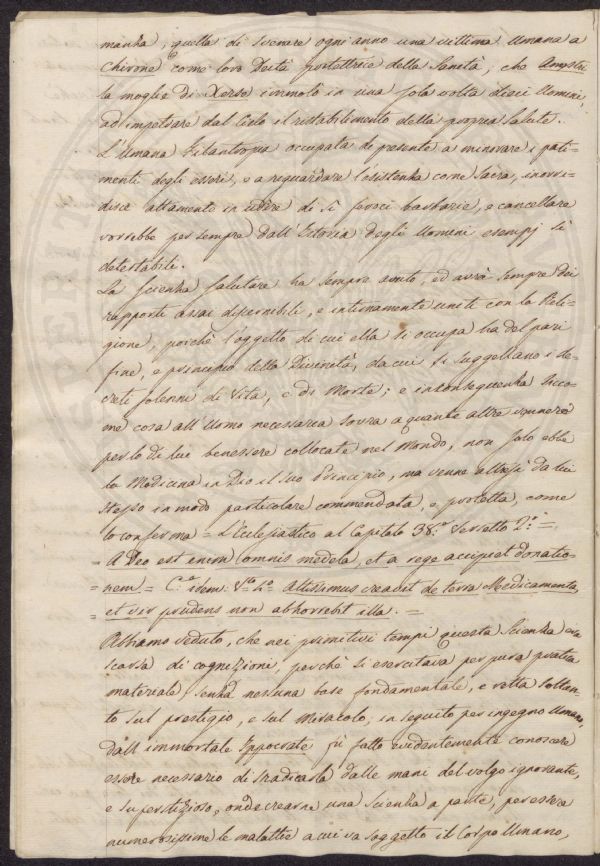 manha, quella di svenare ogni anno una vittima Umana a
Chirone come loro Deità protettrice della Sanità; che Amestri
la moglie di Xerse immolò in una sola volta dieci Uomini,
ad impetrare dal Cielo il ristabilimento della propria Salute.
L'Umana Filantropia occupata di presente a minorare i pati-
menti degli esseri, e a reguardare l'esistenha come Sacra, inorri-
disce altamente in udire di sì feroci barbarie, e cancellare
vorrebbe per sempre dall'Istoria degli Uomini esempj sì
detestabili.
La Scienha Salutare ha sempre avuto, ed avrà sempre dei
rapporti assai discernibili, e intimamente uniti con la Reli-
gione, perchè l'oggetto di cui ella si occupa ha del pari
fine, e principio della Divinità, da cui si suggellano i de-
creti solenni di Vita, e di Morte; e in conseguenha sicco-
me cosa all'Uomo necessaria sovra a quante altre
per lo di lui benessere collocate nel Mondo, non solo ebbe
la Medicina in Dio il suo Principio, ma venne altresì da lui
stesso in modo particolare commendata, e protetta, come
lo conferma = L'Eclesiastico al Capitolo 38.º Versetto 2.º =
= A Deo est enim omnis medela, et a rege accipiet donatio-
= nem = C.º idem: V.to 4.º Altissimus creavit de terra Medicamenta,
= et vir prudens non abhorrebit illa. =
Abbiamo veduto, che nei primitivi tempi questa Scienha era
scarsa di cognizioni, perchè si esercitava per pura pratica
materiale, senha nessuna base fondamentale, e retta soltan-
to sul prestigio, e sul Miracolo; in seguito per ingegno Umano,
dall'immortale Ippocrate fù fatto evidentemente conoscere
essere necessario di sradicarla dalle mani del volgo ignorante,
e superstizioso, onde crearne una Scienha a parte, per essere
numerosissime le malattie a cui va soggetto il Corpo Umano,